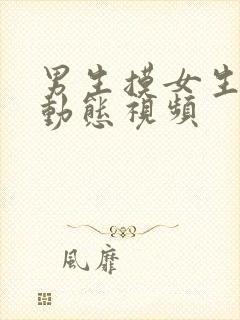 男生摸女生
動態視頻
風靡